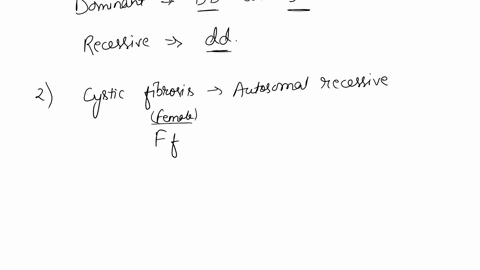 Dominant →
Recessive →> dd.
2) Cystic fibrosis → Autosomal recessive
(Female)
Ff